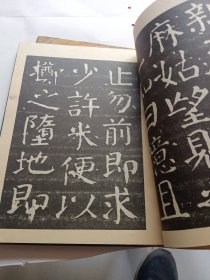 麻姑望見之
曰噫且
止勿前即求
少許米便以
擲之墮地即